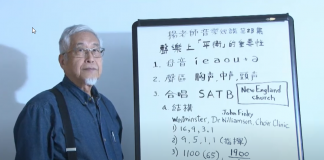 楊老師音樂的練習與
聲樂上「平衡」的重要性
1. 母音 i e a o u , ə
2. 聲區 胸声, 中声, 頭声
3. 合唱 SATB New England church
a 結構 John Finley
Westminster, Dr Williamson, Choir Clinic
1) 16, 4, 3, 1
2) 9, 5, 1, 1
3) 1100 (65) 1900